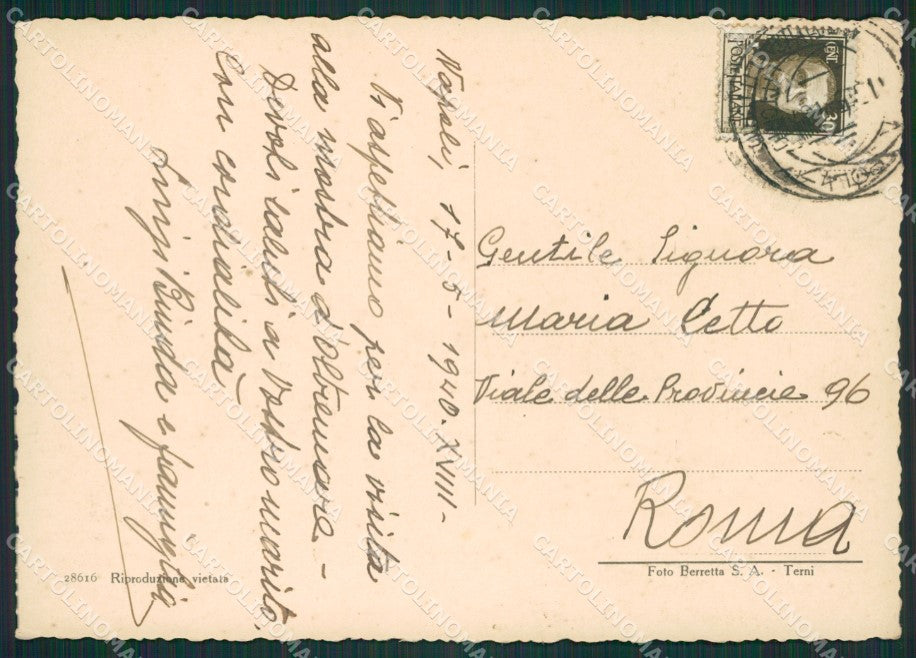 Napoli, 17-5-1940-XVIII-
Vi aspettiamo per la visita
alla mostra d'oltremare -
Devoti saluti a Vostro marito.
Con cordialità
Luigi e famiglia
Gentile Signora
Maria Cetto
Viale delle Provincie 96
Roma
28616 Riproduzione vietata
Foto Berretta S. A. - Terni
POSTE ITALIANE
CENT 30
CARTOLINOMANIA